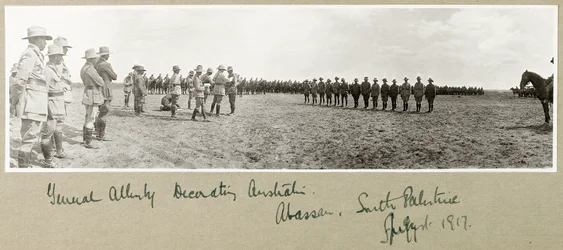 General Allenby Decorating Australia.
Abassan. South Palestine
August. 1917.